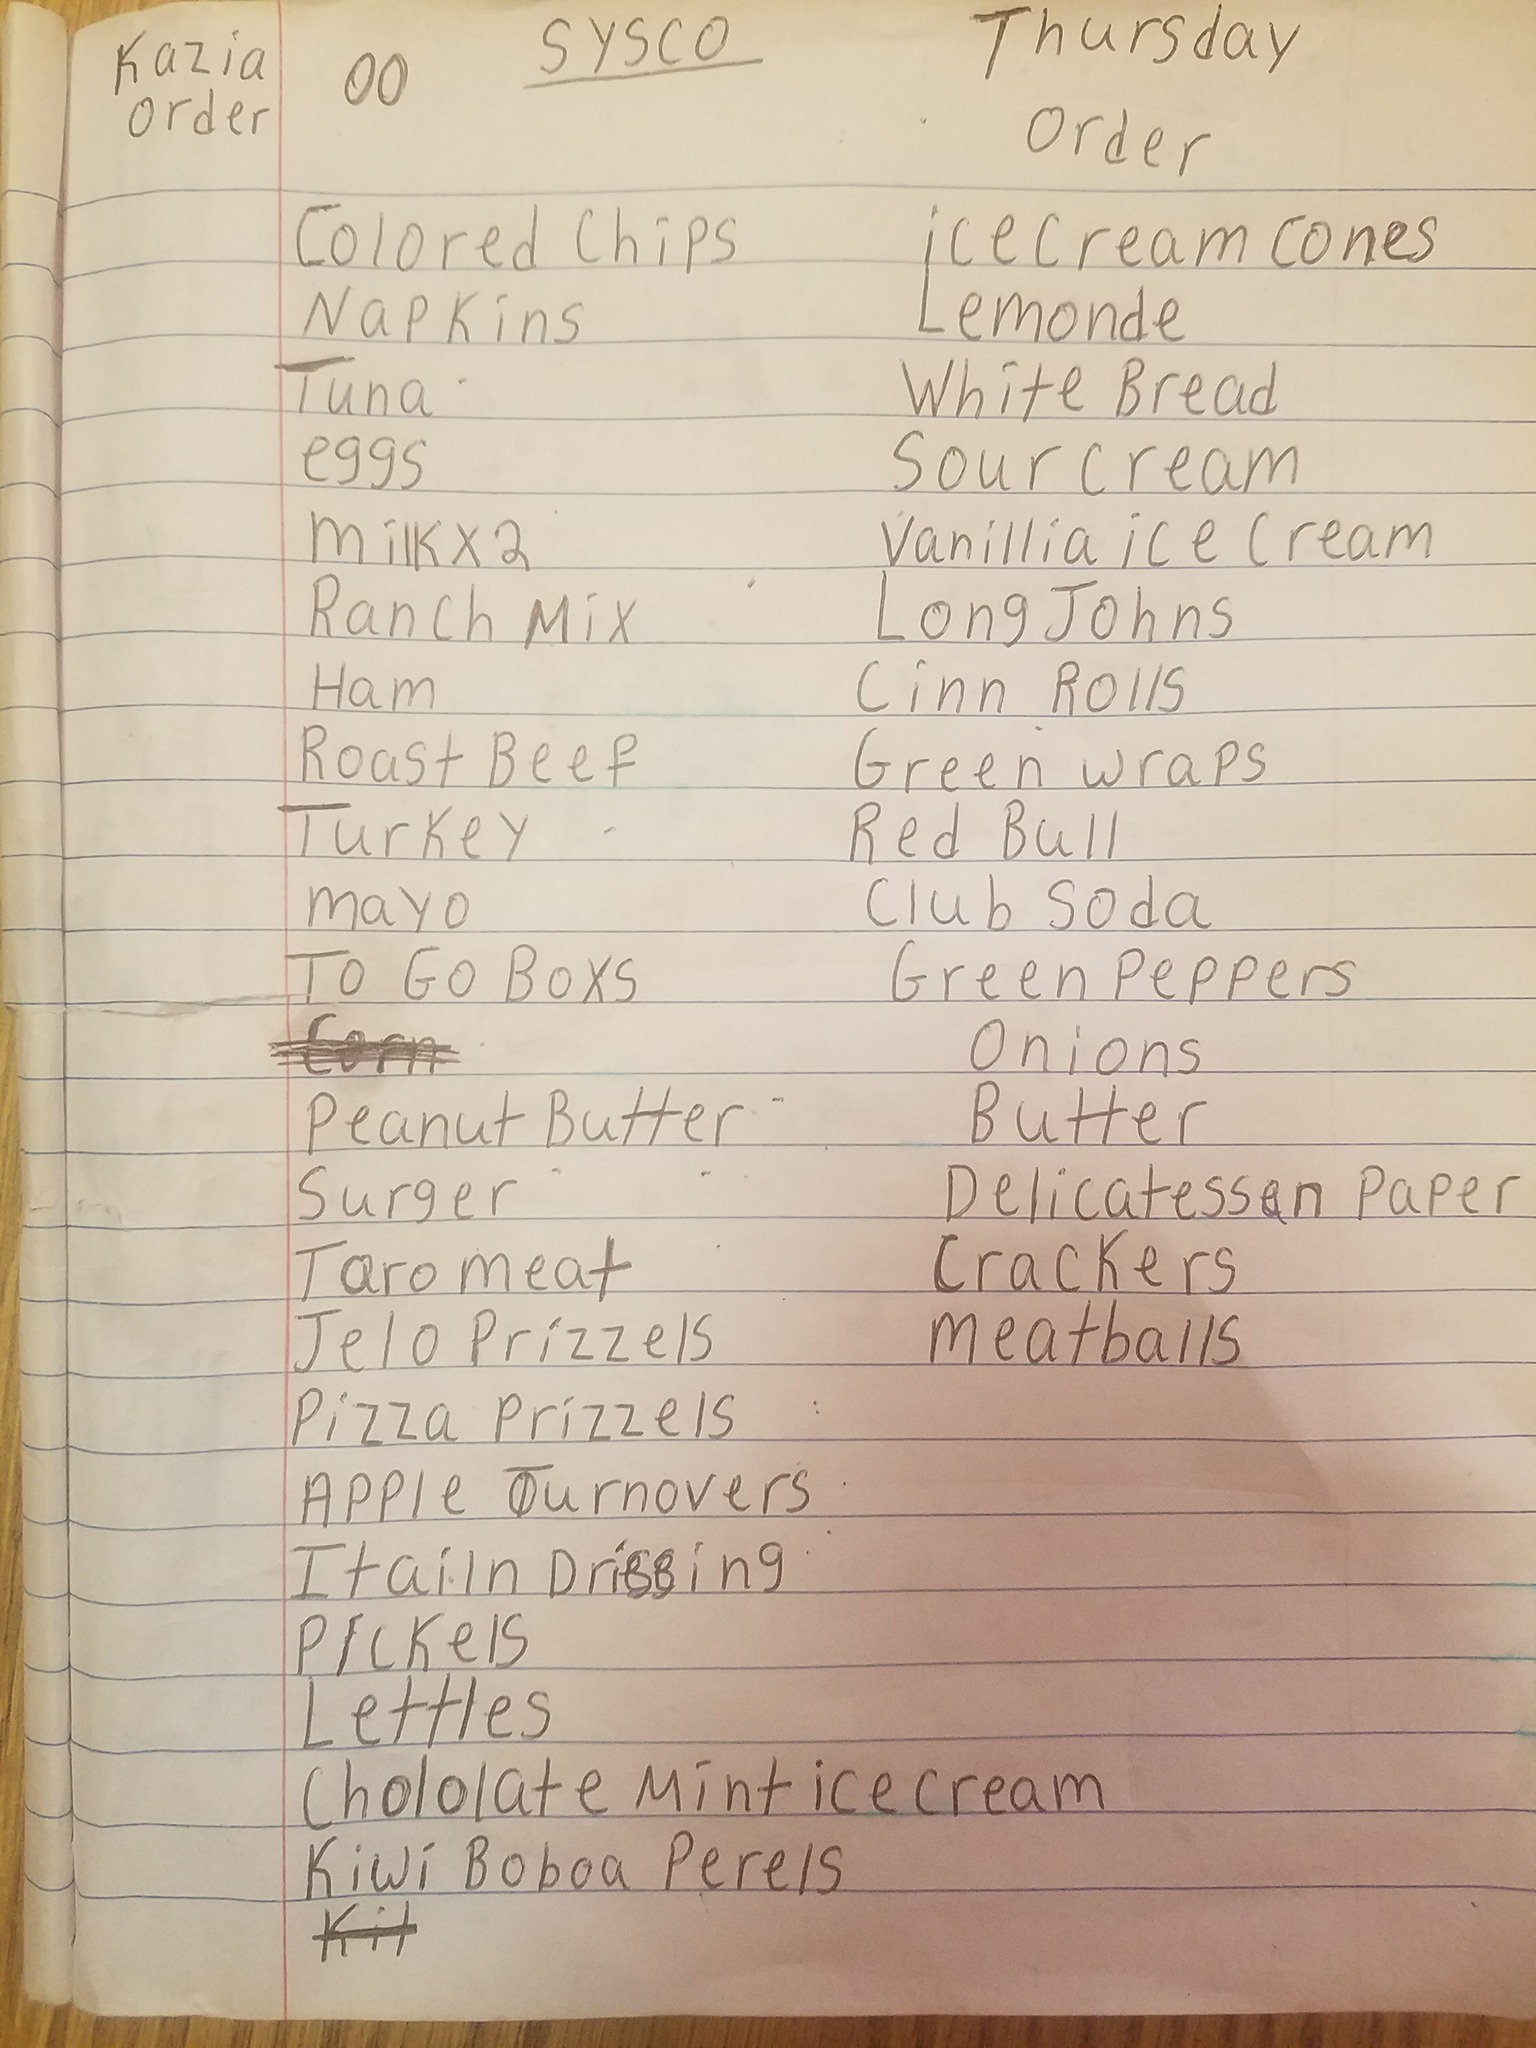 Kazia
order
00
SYSCO
Thursday
Order
Colored Chips
Napkins
Tuna
eggs
milk x 2
Ranch Mix
Ham
Roast Beef
Turkey
mayo
To Go Boxs
Corn
Peanut Butter
Surger
Taro meat
Jelo Prizzels
Pizza Prizzels
Apple Turnovers
Itailn Drissing
Pickels
Lettles
Chololate Mint ice cream
Kiwi Boboa Perels
Kit
ice cream cones
Lemonde
White Bread
Sour cream
Vanillia ice cream
Long Johns
Cinn Rolls
Green wraps
Red Bull
Club Soda
Green Peppers
Onions
Butter
Delicatessen Paper
Crackers
meatballs